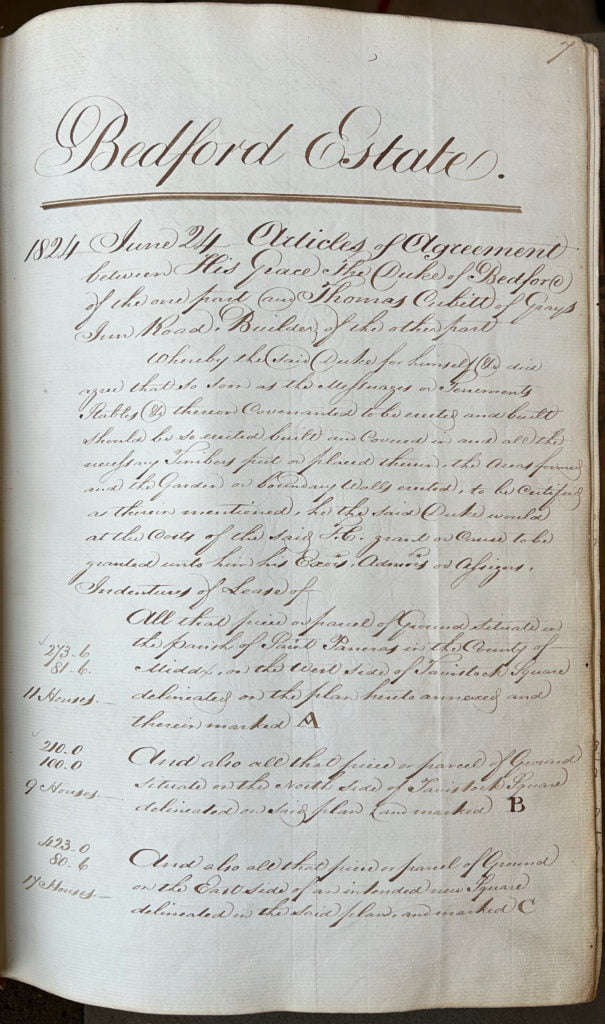 7
Bedford Estate.
1824 June 24 Articles of Agreement
between His Grace The Duke of Bedford
of the one part and Thomas Cubitt of Grays
Inn Road, Builder, of the other part
Whereby the said Duke for himself &c did
agree that so soon as the Messuages or Tenements
Stables &c thereon Covenanted to be erected and built
should be so erected built and Covered in and all the
necessary Timbers put or placed therein, the Areas formed
and the Garden or boundary Walls erected, to be Certified
as therein mentioned, he the said Duke would
at the Costs of the said T.C. grant or Cause to be
granted unto him his Exors, Admors or Assigns,
Indentures of Lease of
All that piece or parcel of Ground situate in
273-6 the parish of Saint Pancras in the County of
81-6 Middx, on the West side of Tavistock Square
11 Houses.— delineated on the plan hereto annexed and
therein marked A
210-0 And also all that piece or parcel of Ground
100-0 situate on the North side of Tavistock Square
9 Houses.— delineated on said plan and marked B
423-0 And also all that piece or parcel of Ground
80-6 on the East side of an intended new Square
17 Houses— delineated in the said plan, and marked C